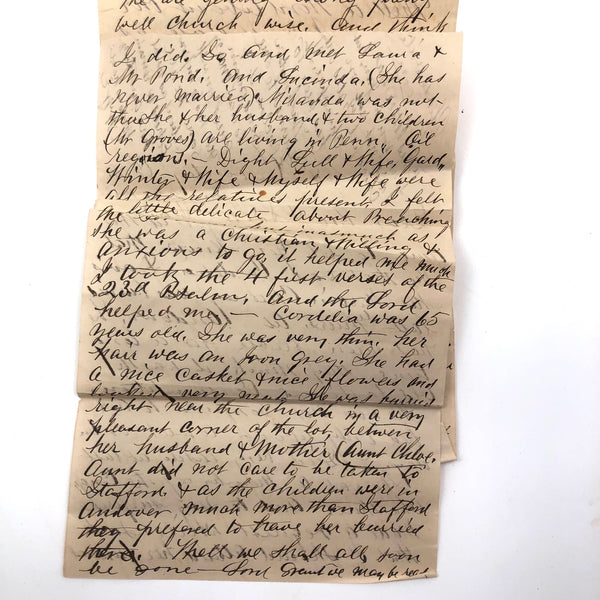 well church wise. and think
I did. So and met Laura &
Mr Pond. and Lucinda. (She has
never married) Miranda was not
there She & her husband & two children
(Mr Groves) are living in Penn, Oil
regions. — Dight Lull & Wife, Gard,
Winter & Wife & Myself & Wife were
all the relatives present. I felt
a little delicate about Preaching
inasmuch as
she was a Christian & Willing &
anxious to go, it helped me much
I took the 4 first verses of the
23d Psalm, and the Lord
helped me, — Cordelia was 65
years old. She was very thin, her
hair was an Iron grey. She had
a nice Casket & nice flowers and
very neat. She was buried
right near the church in a very
pleasant corner of the lot, between
her husband & Mother (Aunt Chloe.
Aunt did not care to be taken to
Stafford & as the children were in
Andover much more than Stafford
they prefered to have her buried
there. Well we shall all soon
be gone — Lord Grant we may be ready